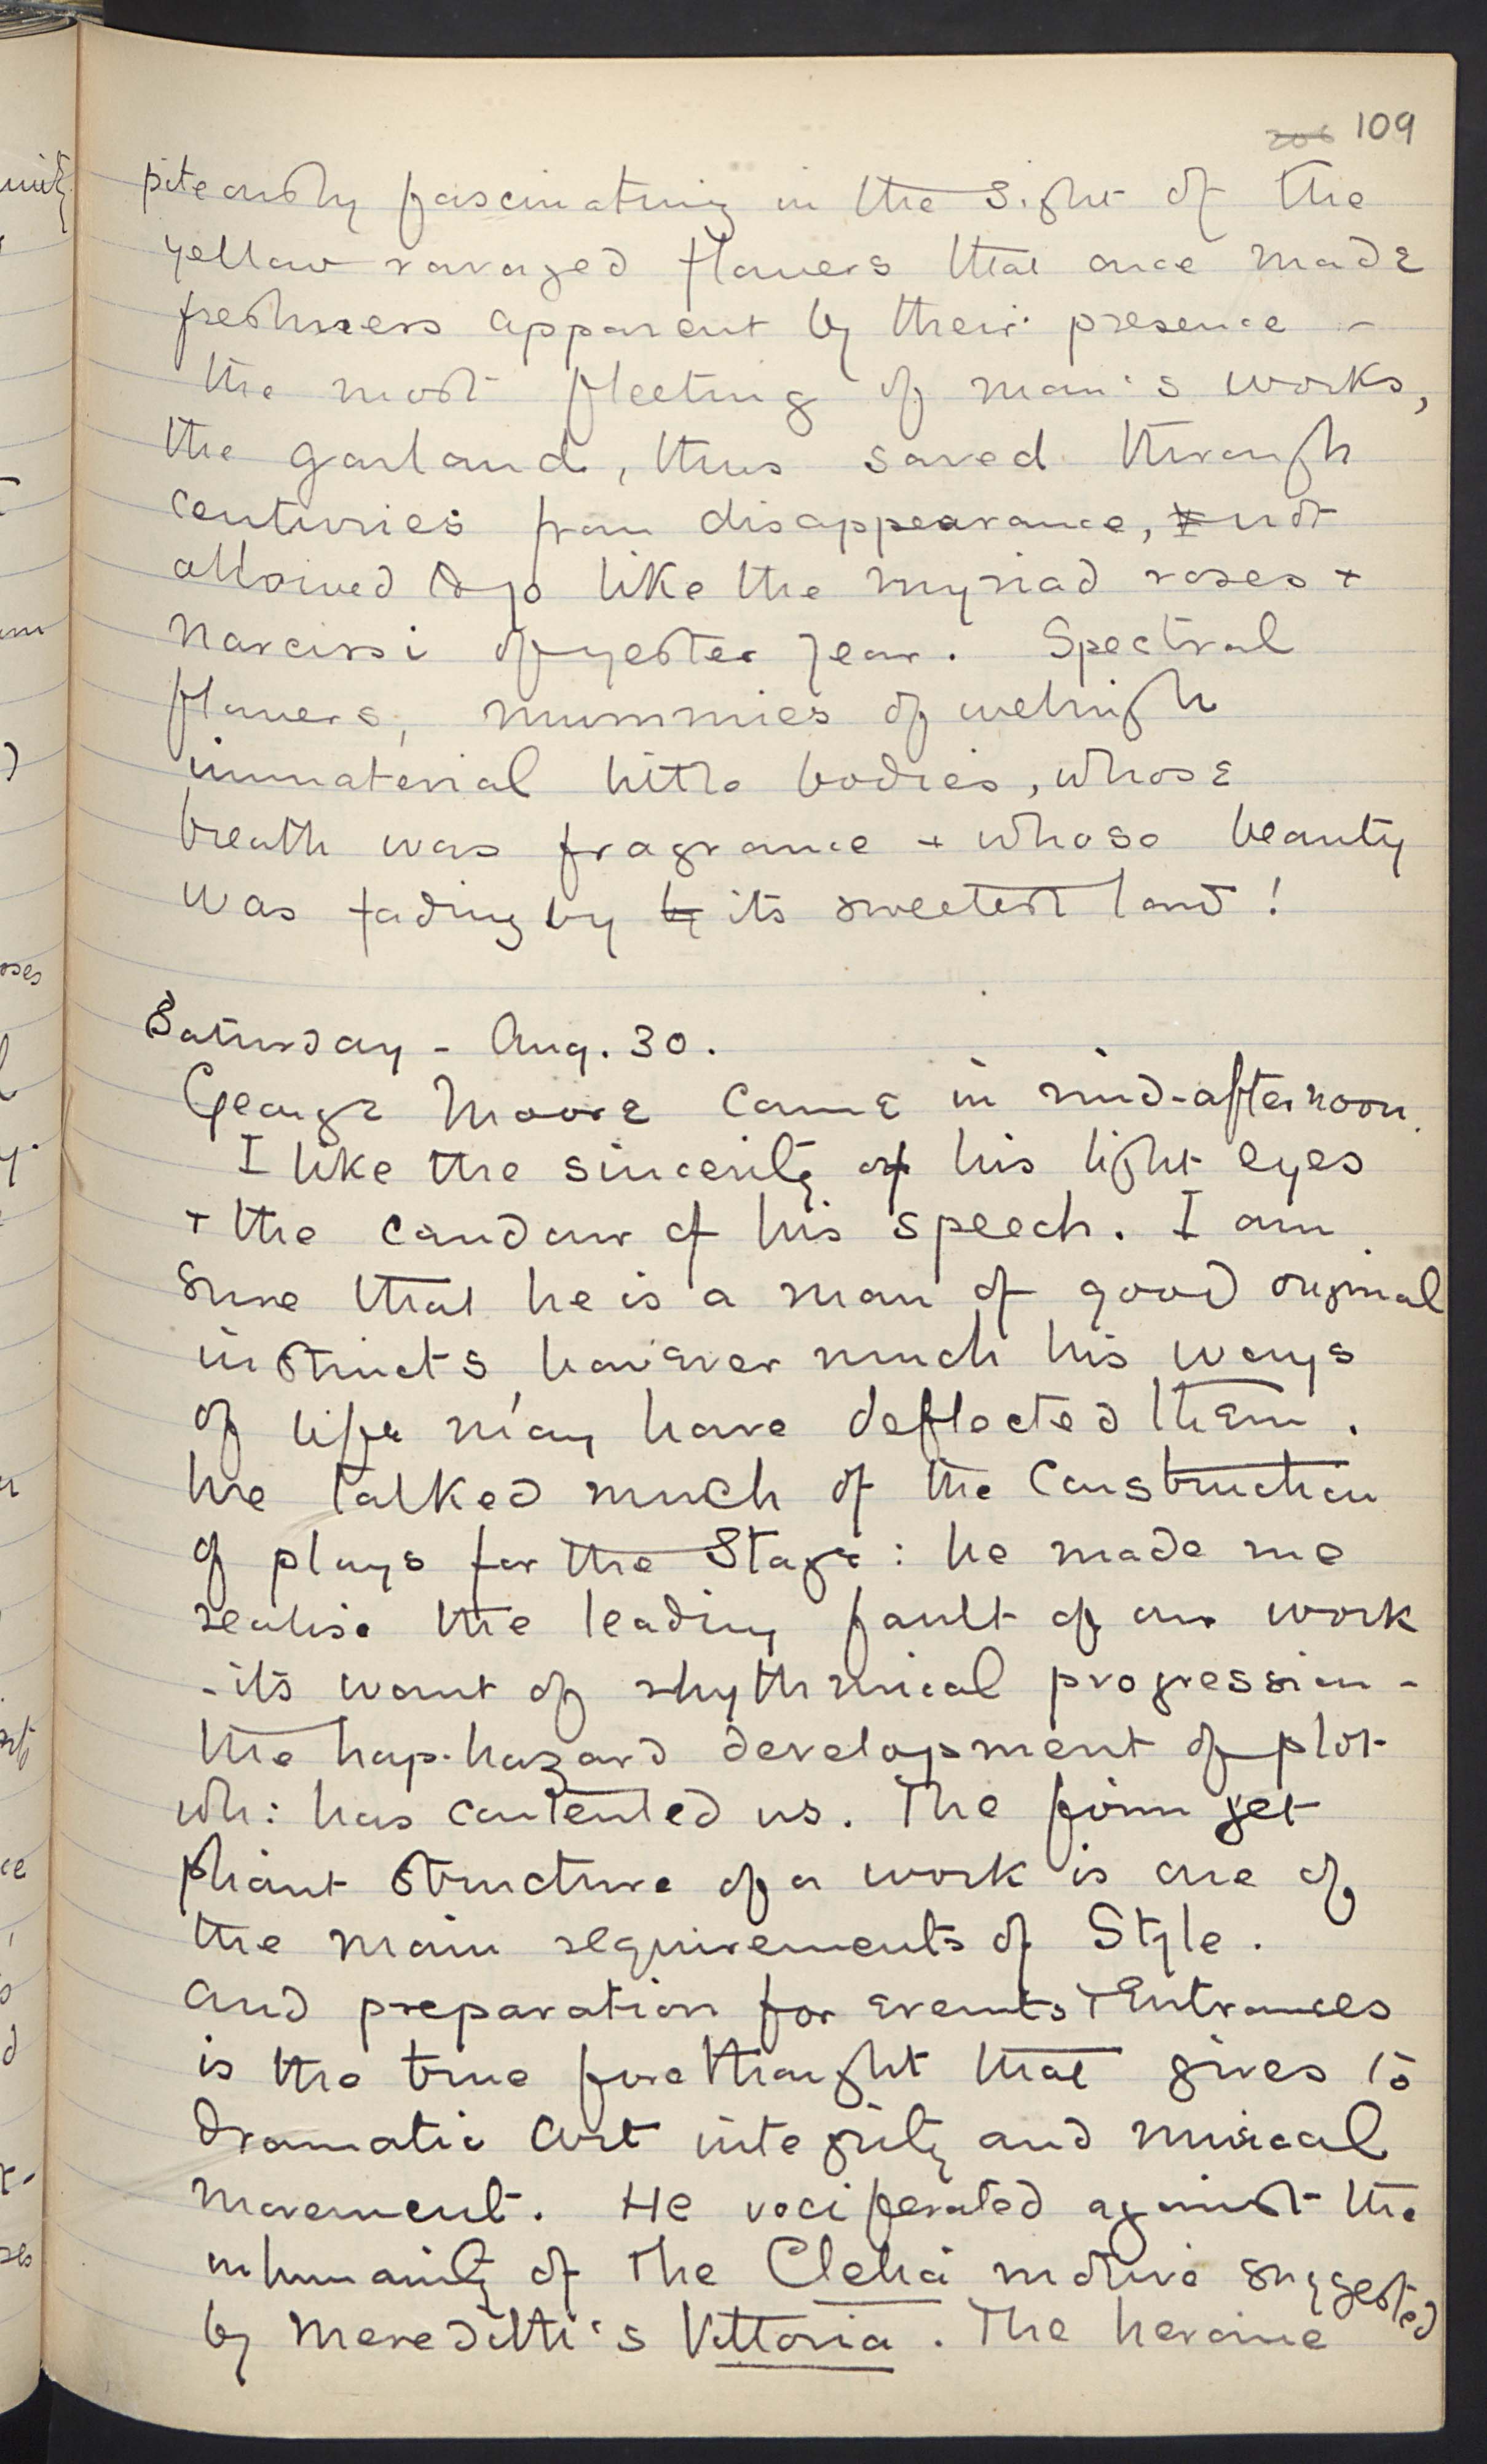 109
piteously fascinating in the sight of the
yellow ravaged flowers that once made
freshness apparent by their presence –
the most fleeting of man's works,
the garland, thus saved through
centuries from disappearance, not
allowed to go like the myriad roses +
narcissi of yester year. Spectral
flowers, mummies of wellnigh
immaterial little bodies, whose
breath was fragrance + whose beauty
was fading by by its sweetest
Saturday – Aug. 30.
George Moore came in mid-afternoon.
I like the sincerity of his light eyes
+ the candour of his speech. I am
sure that he is a man of good original
instincts however much his ways
of life may have deflected them.
he talked much of the Construction
of plays for the Stage: he made me
realise the leading fault of our work
– its want of rhythmical progression –
the hap-hazard development of plot
wh: has contented us. The firm yet
pliant structure of a work is one of
the main requirements of Style.
And preparation for events + Entrances
is the true forethought that gives to
dramatic Art integrity and musical
movement. He vociferated against the
inhumanity of the Clelia motive suggested
by Meredith's Vittoria. The heroine